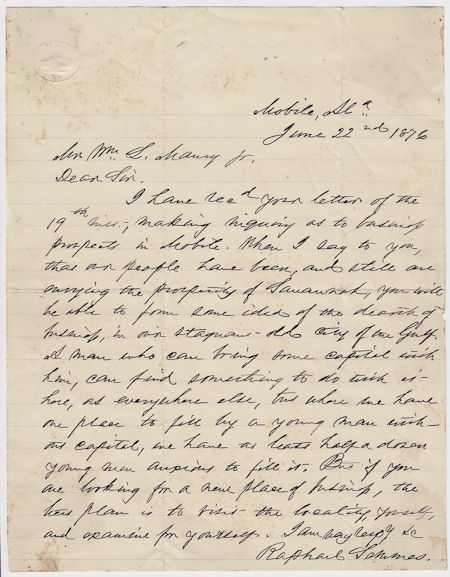 Mobile, Ala.
June 22nd 1876
Mr Wm. L. Maury Jr.
Dear Sir.
I have recd your letter of the
19th inst., making inquiry as to business
prospects in Mobile. When I say to you,
that our people have been, and still are
envying the prosperity of Savannah, you will
be able to form some idea of the dearth of
business, in our stagnant old City of the Gulf.
A man who can bring some capital with
him, can find something to do with it
here, as everywhere else, but where we have
one place to fill by a young man with-
out capital, we have at least half a dozen
young men anxious to fill it. But if you
are looking for a new place of business, the
best plan is to visit the locality, yourself,
and examine for yourself. I am very respy &c
Raphael Semmes.